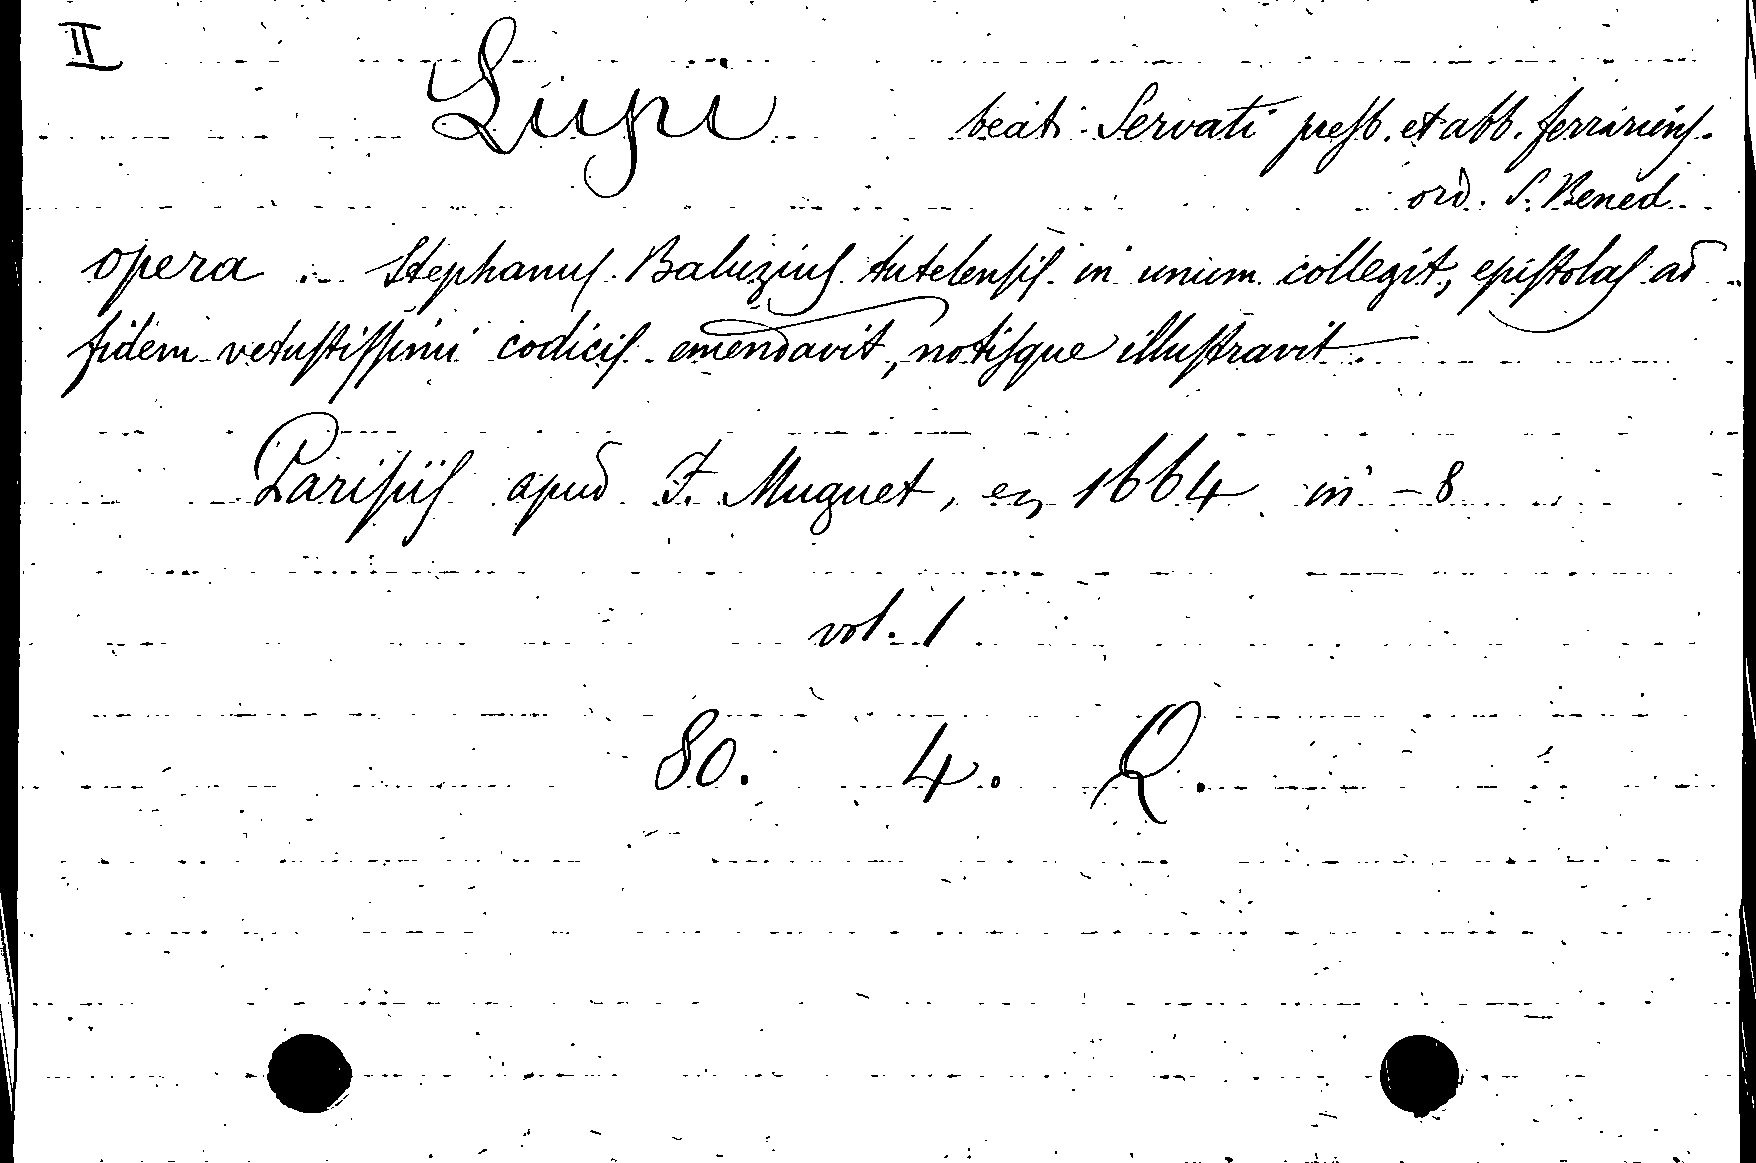 II
Lupi beati Servati presb. et abb. ferrariens.
ord. S. Bened.
opera .. Stephanus Baluzius tutelensis in unum collegit, epistolas ad
fidem vetustissimi codicis emendavit, notisque illustravit.
Parisiis apud F. Muguet, en 1664 in - 8
vol. 1
80. 4. Q.